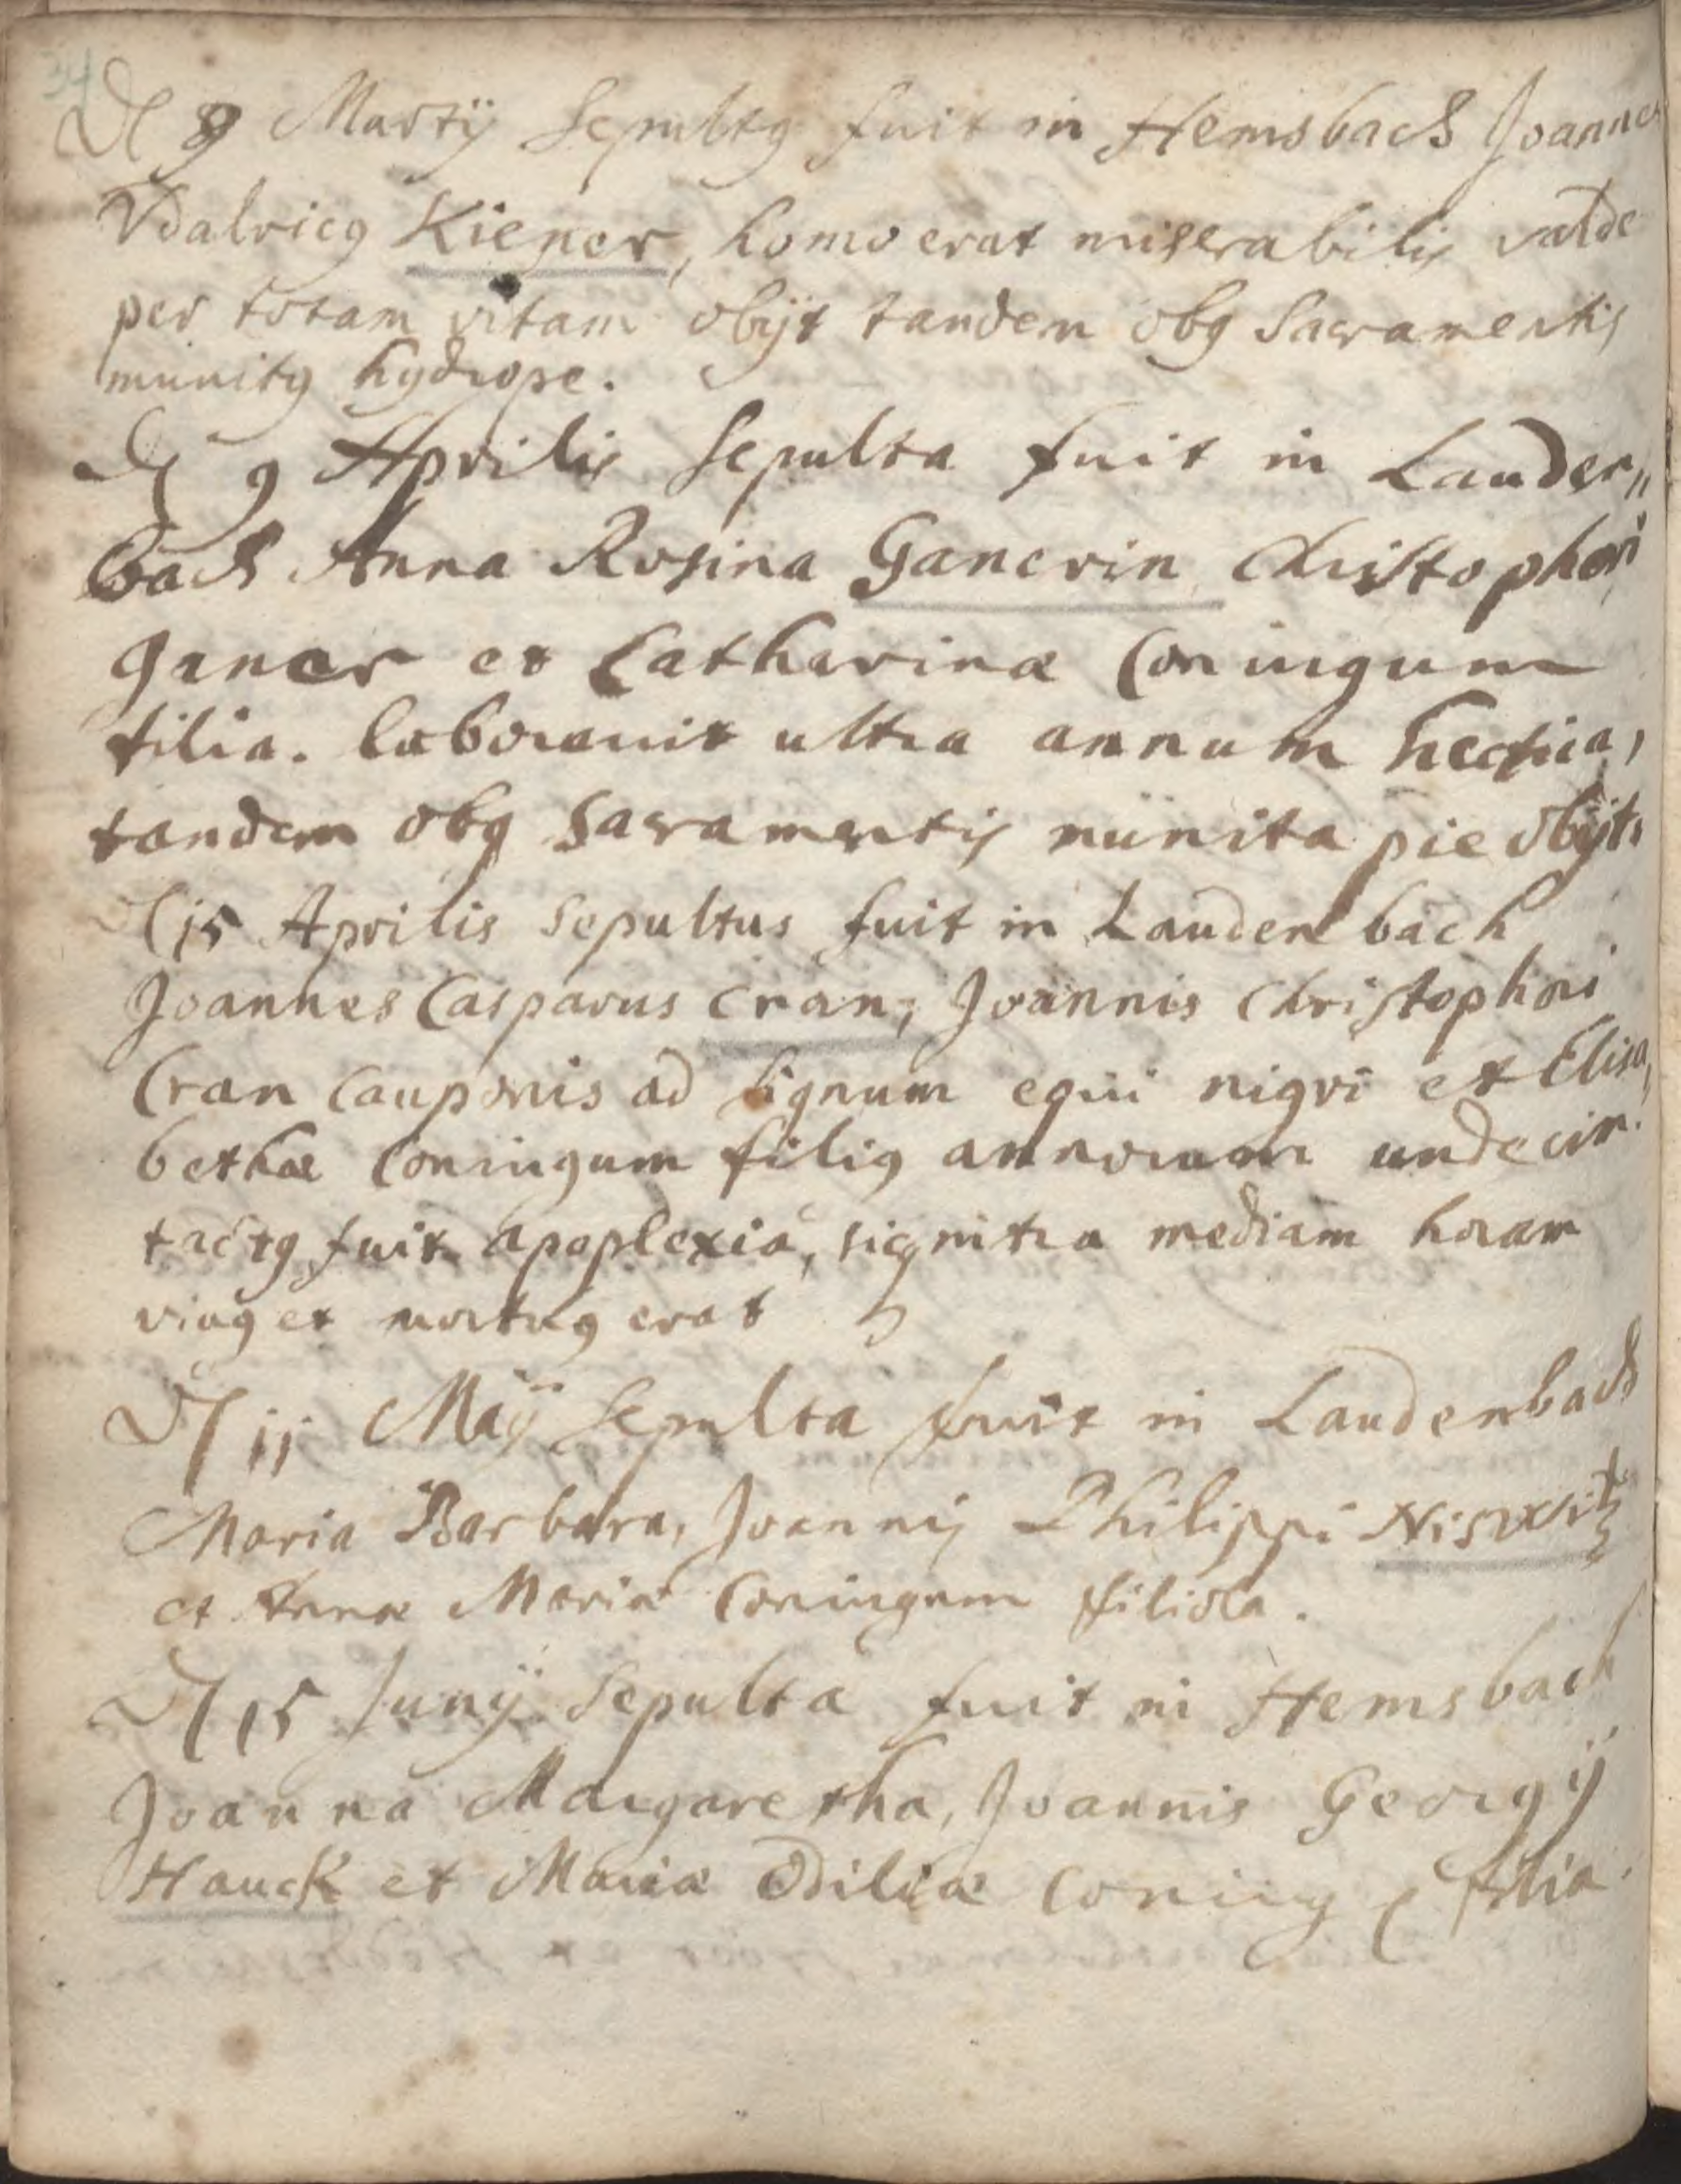 34
D 9 Martij Sepultq fuit in Hemsbach Joannes
Vdalricq Kiener, homo erat miserabilis valde
per totam vitam obijt tandem obq Sacramentis
munitq hydrope.
D 9 Aprilis Sepulta fuit in Lauden„
bach Anna Rosina Ganerin Christophori
Ganer et Catharinæ Coniugum
filia. laborauit ultra annum hectica,
tandem obq Sacramentis münita pie obijt.
D 15 Aprilis Sepultus fuit in Laudenbach
Joannes Casparus Cran, Joannis Christophori
Cran Cauponis ad signum equi nigri et Elisa„
bethæ Coniugum filiq annorum undecim.
tactq fuit apoplexiâ, sicq intra mediam horam
viuq et mortuq erat
D 11 Maÿ Sepulta fuit in Laudenbach
Maria Barbara, Joannis Philippi Niswitz
et Annæ Mariæ Coniugum filiola.
D 15 Junÿ Sepulta fuit in Hemsbach
Joanna Margaretha, Joannis Georgÿ
Hauck et Mariæ Odiliæ Coniug filia.